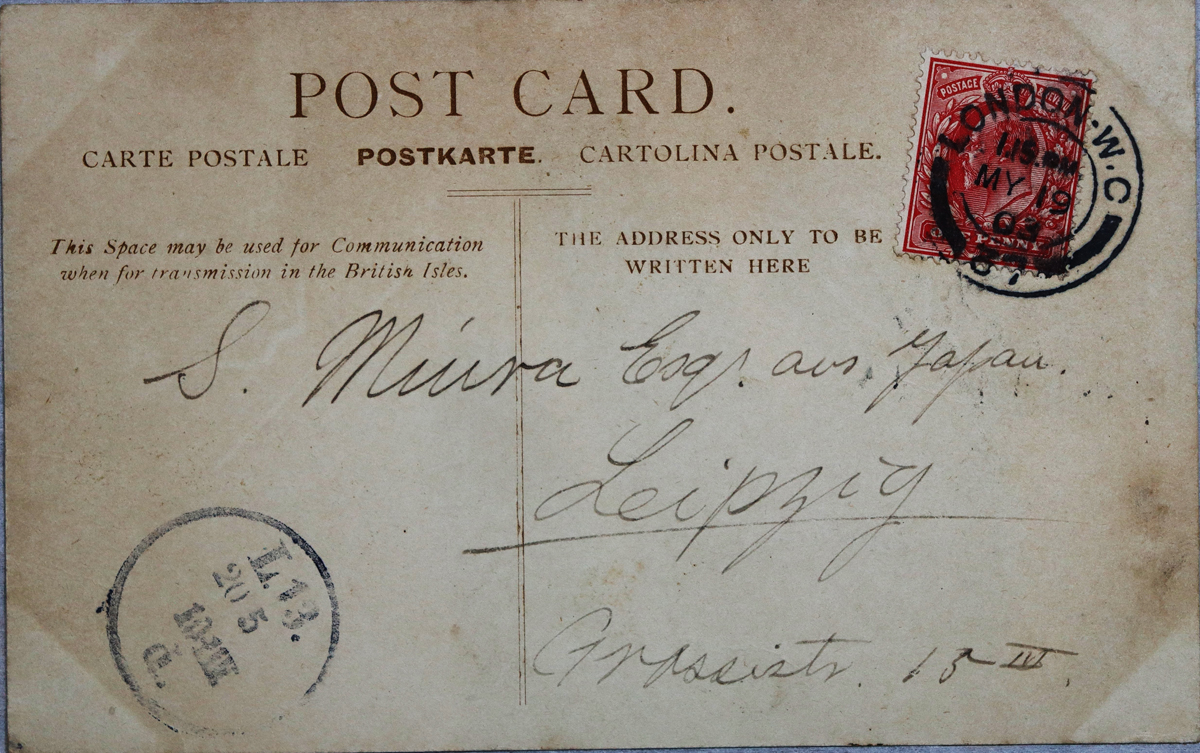 POST CARD.
CARTE POSTALE POSTKARTE. CARTOLINA POSTALE.
This Space may be used for Communication
when for transmission in the British Isles.
THE ADDRESS ONLY TO BE
WRITTEN HERE
POSTAGE
ONE PENNY
LONDON.W.C
1.15.PM
MY 19
03
37
S. Miura Esqr. aus Japan.
Leipzig
Grassistr. 15 III.
L.13.
20 5